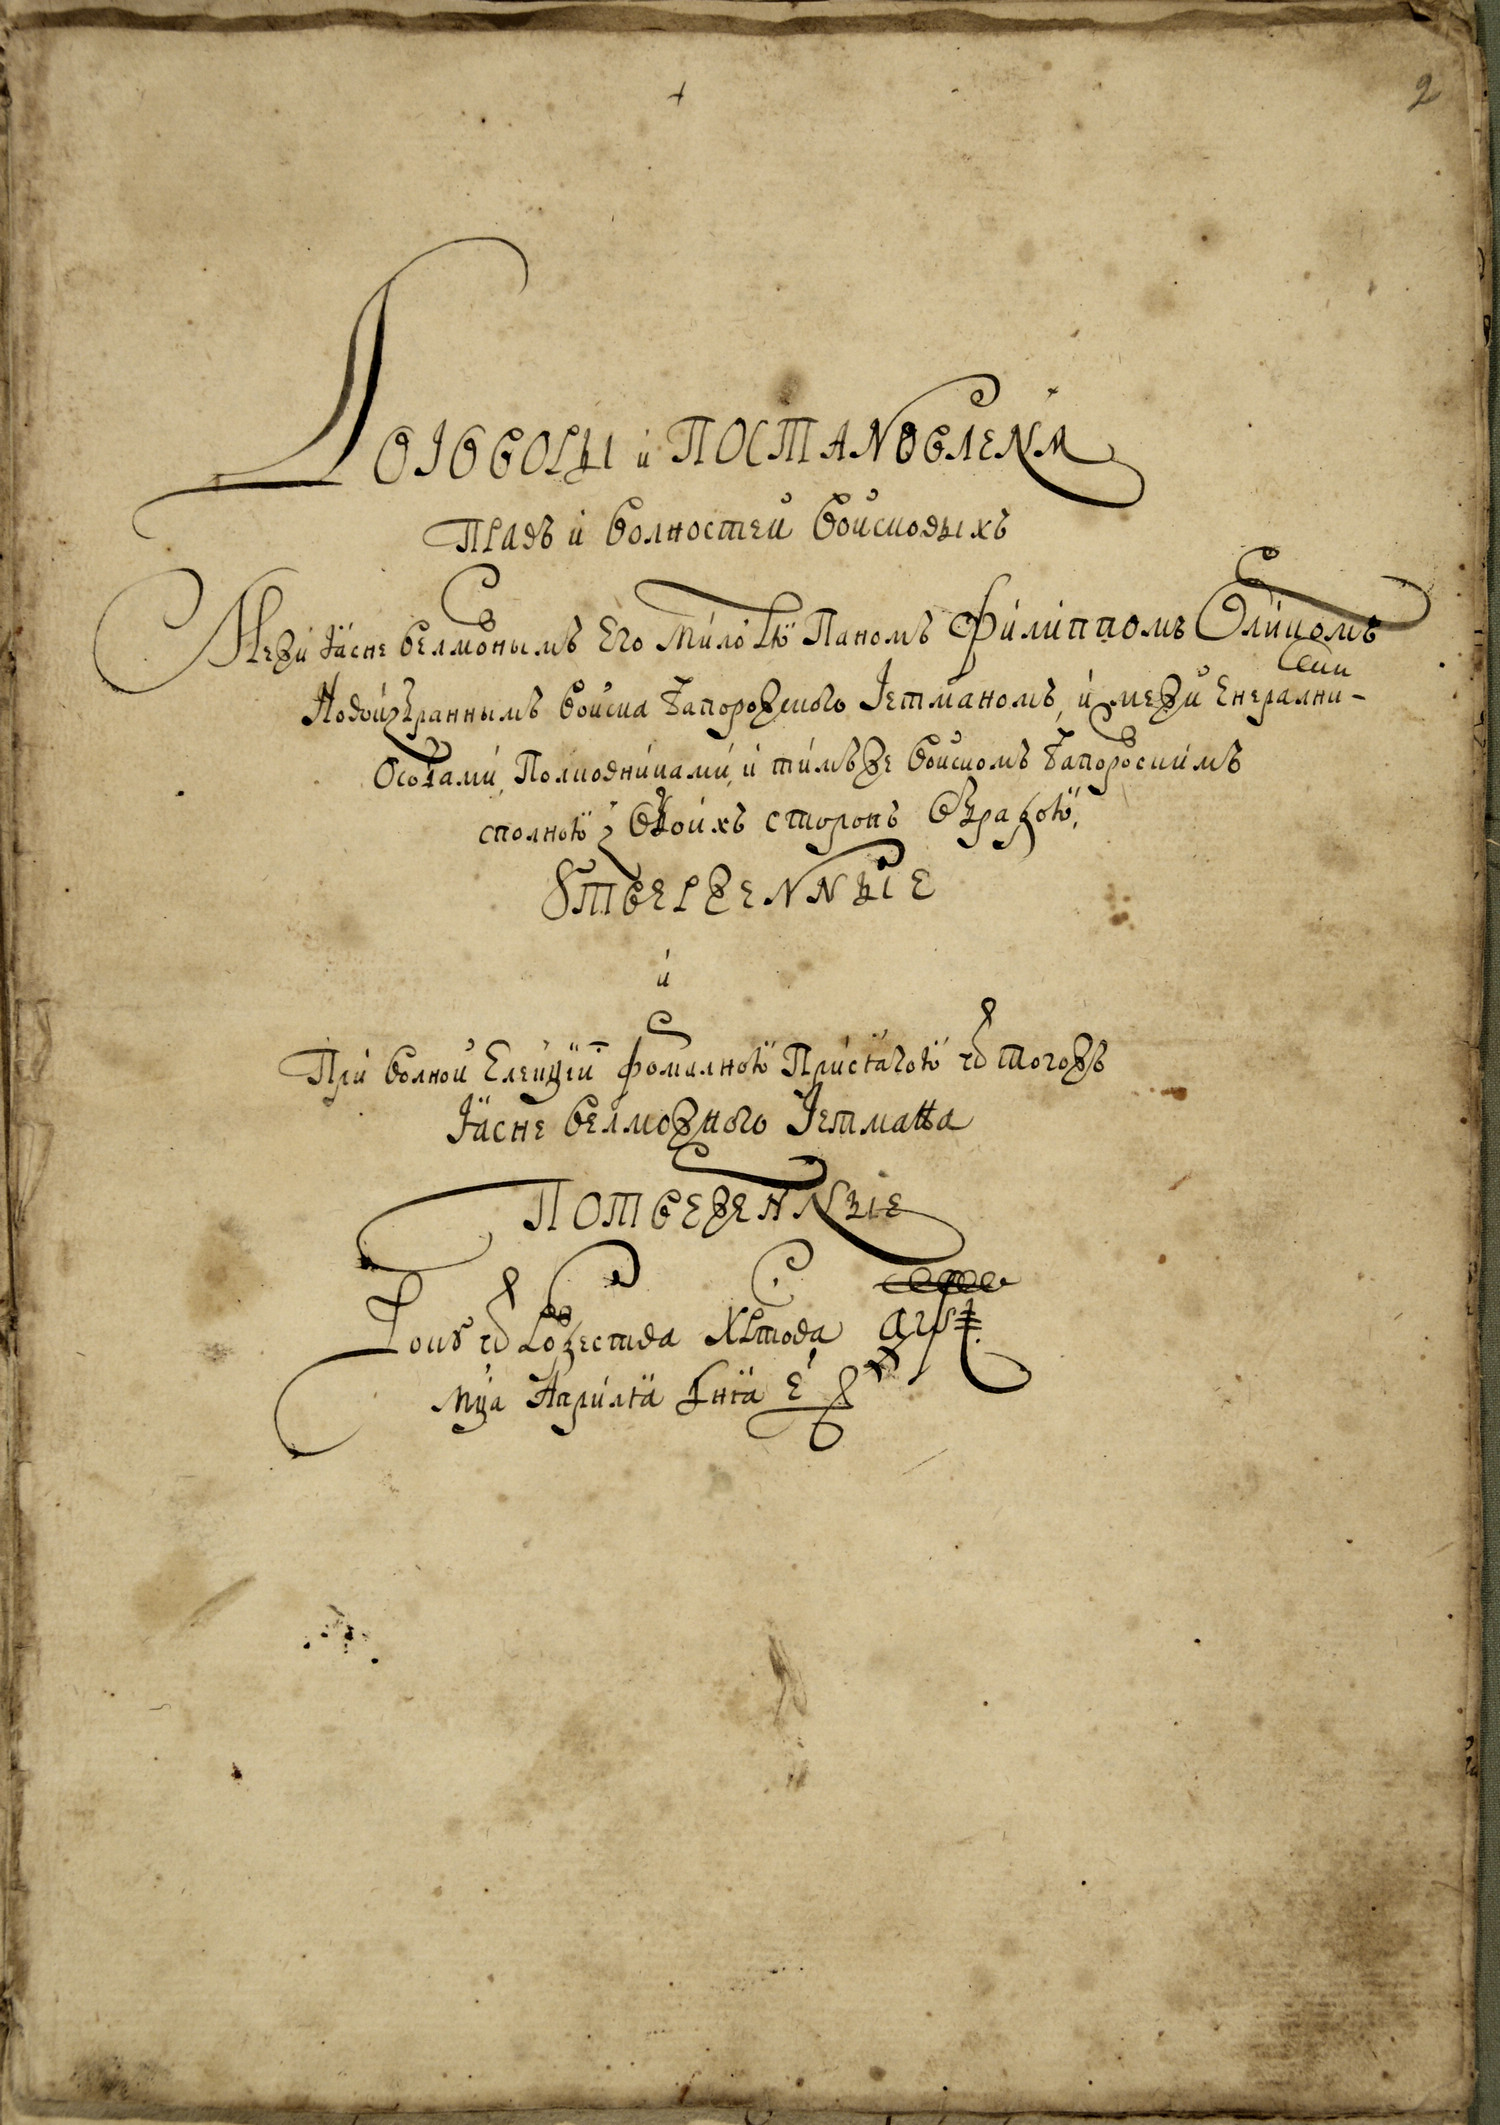 2
Договоры и Постановленя
Правъ и волностей войсковыхъ
Межи Ясне велможнымъ Его милостю Паномъ Филиппомъ Орликомъ
Новоизбраннымъ войска Запорожского Гетманомъ, и межи Енералними
Особами, Полковниками, и тимъже войскомъ Запорозскимъ
сполною з обойхъ сторонъ обрадою,
Утверженные
и
При волной Елекцій формалною Присягою ѿ тогожъ
Ясне велможного Гетмана
Потверженные
Року ѿ Рожества Христова аѱі
мца Априля дня є